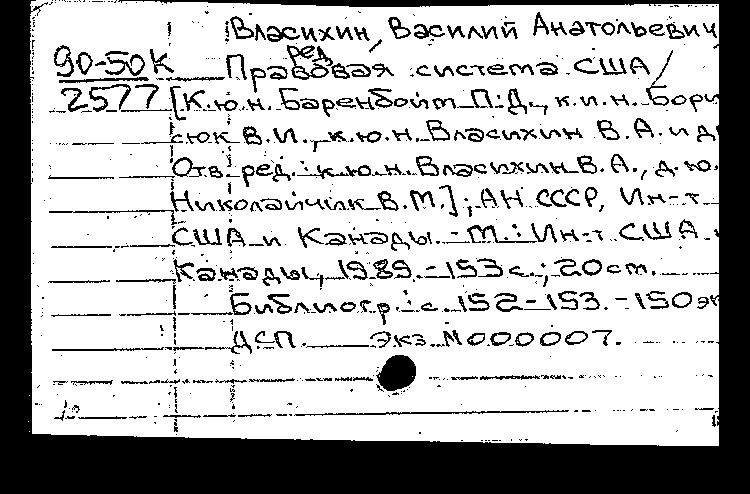 Власихин, Василий Анатольевич
ред.
90-50К Правовая система США /
2577 [К.ю.н. Баренбойм П.Д., к.и.н. Бори
сюк В.И., к.ю.н. Власихин В.А. и д
Отв. ред.: к.ю.н. Власихин В.А., д.ю.
Николайчик В.М.]; АН СССР, Ин-т
США и Канады. - М.: Ин-т США
Канады, 1989. - 153 с.; 20 см.
Библиогр.: с. 152-153. - 150 эк
ДСП. Экз. N 000007.